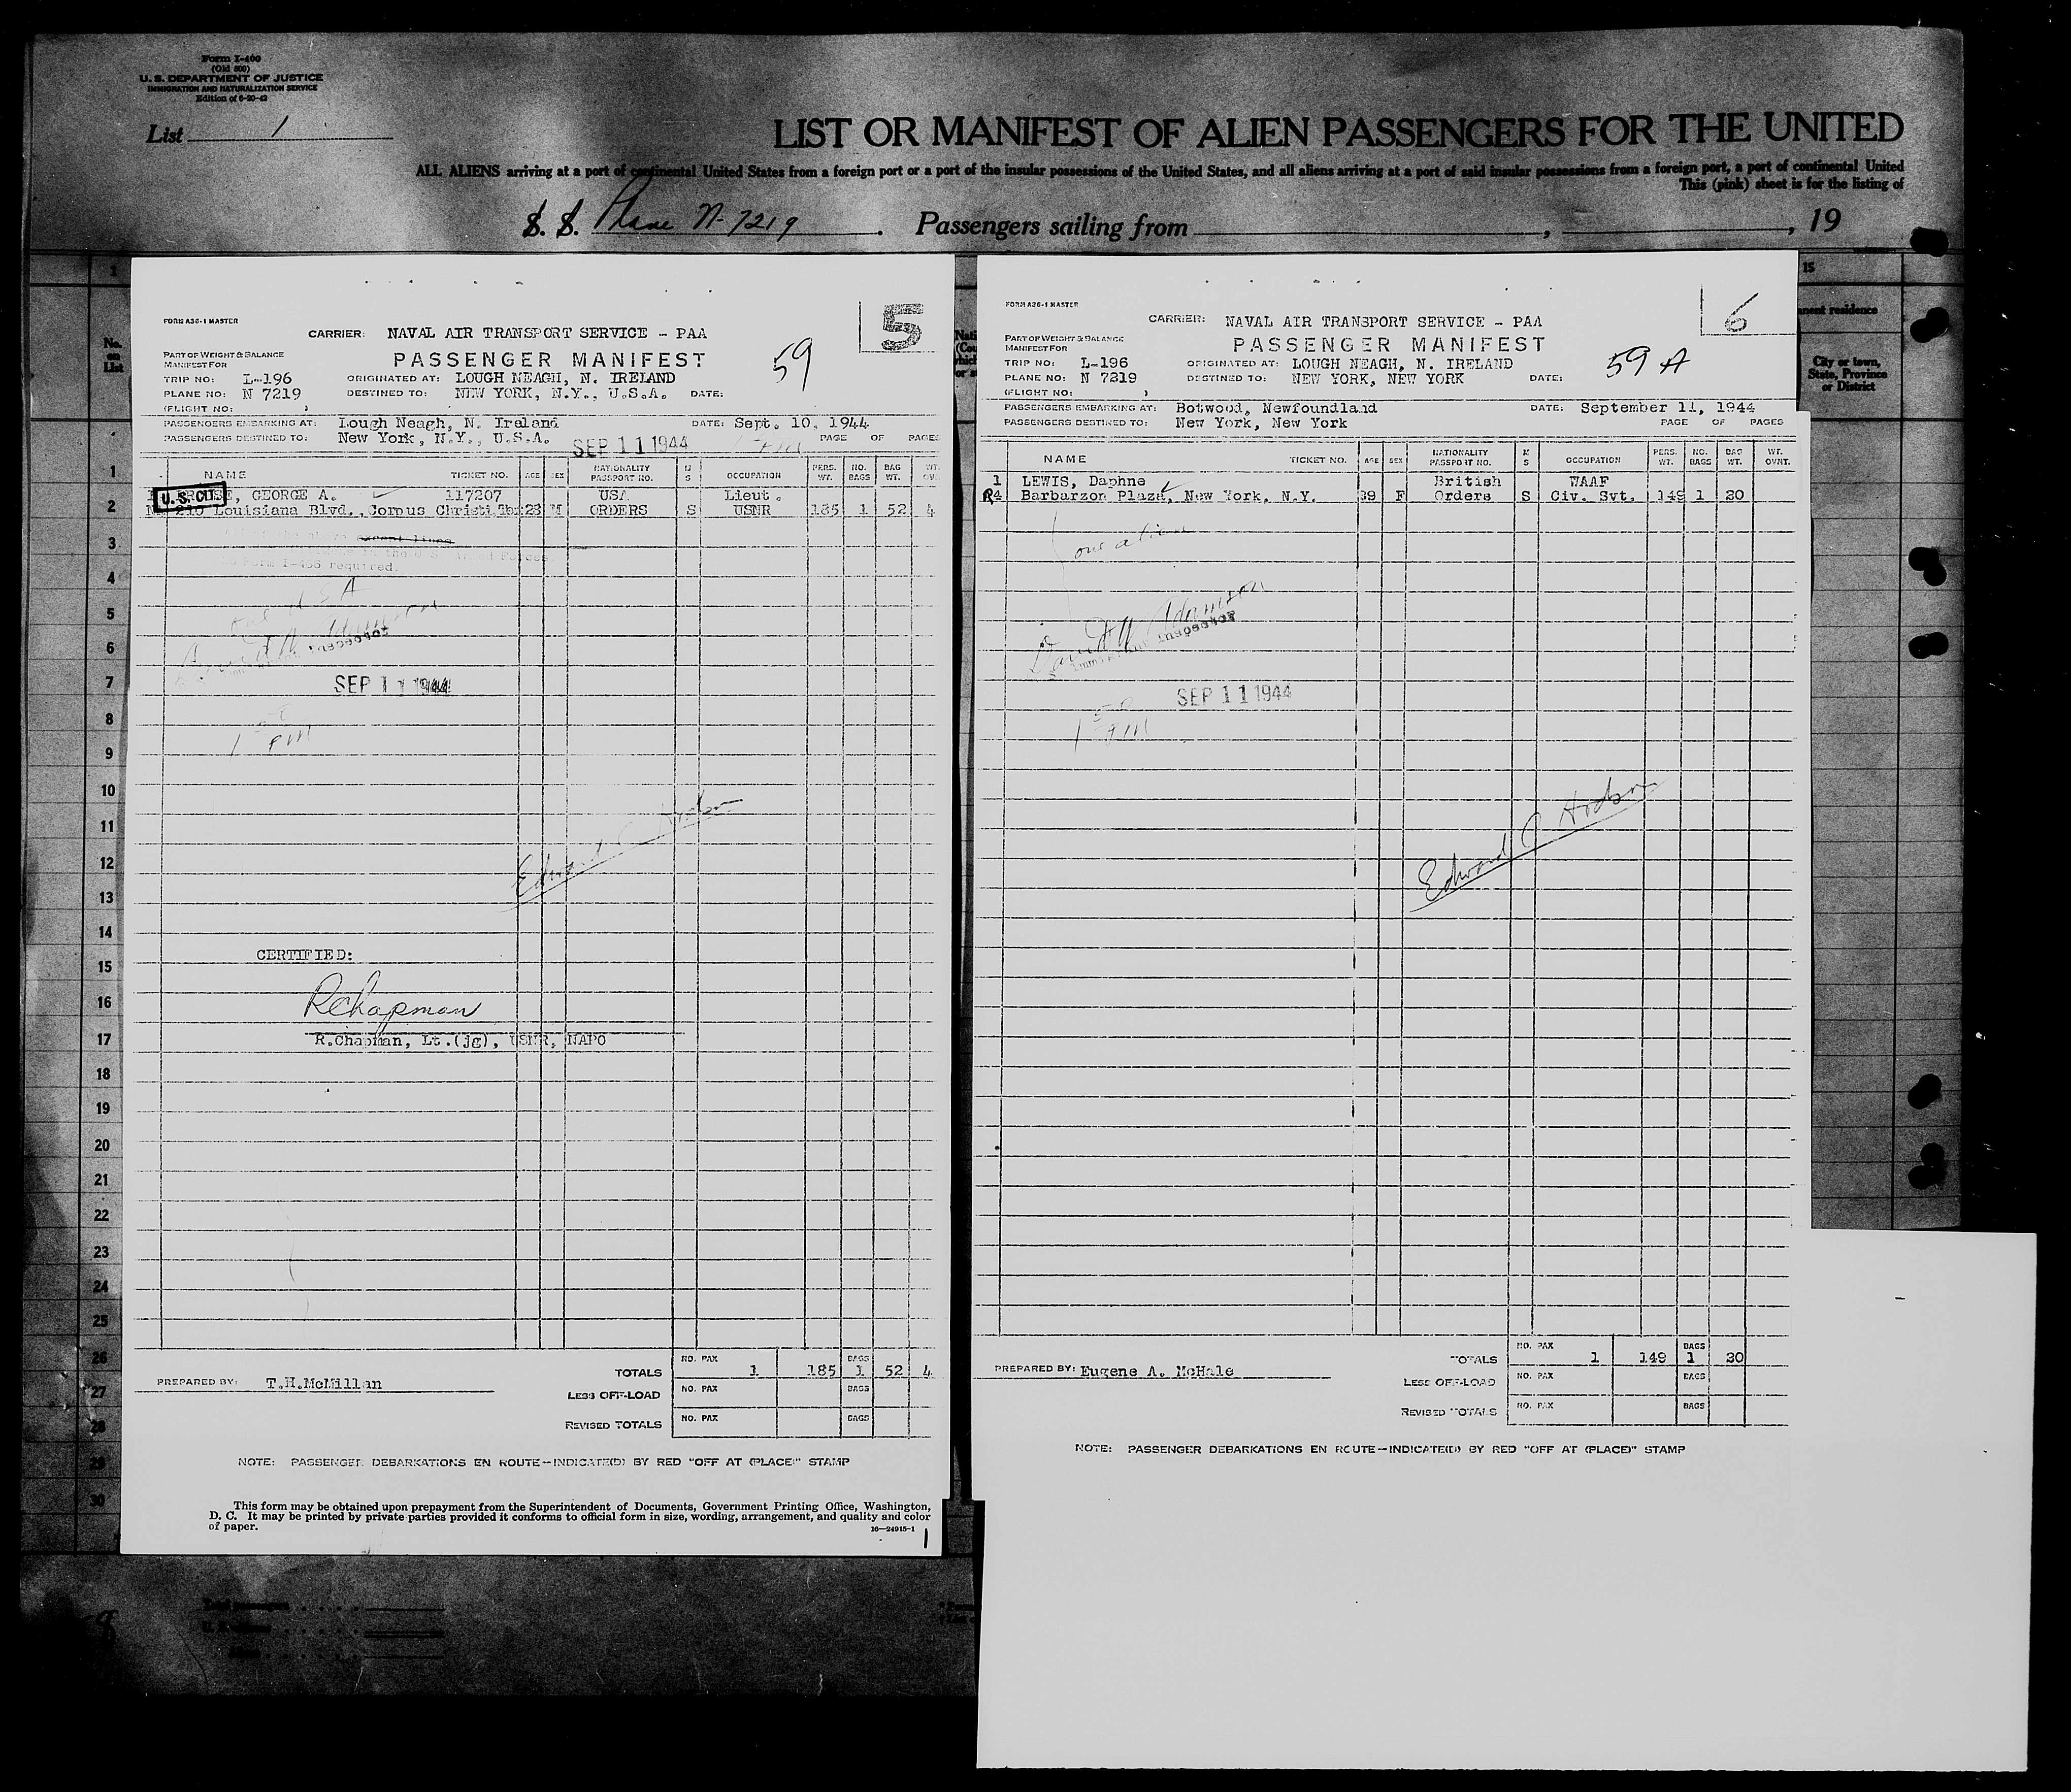 Form I-400
(Old 500)
U. S. DEPARTMENT OF JUSTICE
IMMIGRATION AND NATURALIZATION SERVICE
Edition of 6-20-42
List 1
LIST OR MANIFEST OF ALIEN PASSENGERS FOR THE UNITED
ALL ALIENS arriving at a port of continental United States from a foreign port or a port of the insular possessions of the United States, and all aliens arriving at a port of said insular possessions from a foreign port, a port of continental United
This (pink) sheet is for the listing of
S. S. Plane N-7219 . Passengers sailing from , , 19
FORM A36-1 MASTER
5
CARRIER: NAVAL AIR TRANSPORT SERVICE - PAA
PASSENGER MANIFEST
59
PART OF WEIGHT & BALANCE
MANIFEST FOR
TRIP NO: L-196 ORIGINATED AT: LOUGH NEAGH, N. IRELAND
PLANE NO: N 7219 DESTINED TO: NEW YORK, N.Y., U.S.A. DATE:
(FLIGHT NO: )
PASSENGERS EMBARKING AT: Lough Neagh, N. Ireland DATE: Sept. 10, 1944
PASSENGERS DESTINED TO: New York, N.Y., U.S.A. SEP 11 1944 PAGE OF PAGES
NAME TICKET NO. AGE SEX NATIONALITY PASSPORT NO. M S OCCUPATION PERS. WT. NO. BAGS BAG WT. WT.
U.S. CIT GEORGE A. 117207 USA Lieut.
210 Louisiana Blvd., Corpus Christi 28 M ORDERS S USNR 185 1 52 4
except lines
Form I-466 required.
USA
Inspector
SEP 11 1944
1 PM
Edward C Hodson
CERTIFIED:
RChapman
R.Chapman, Lt.(jg), USNR, NAPO
TOTALS NO. PAX 1 185 BAGS 1 52 4
PREPARED BY: T.H.McMillan
LESS OFF-LOAD NO. PAX BAGS
REVISED TOTALS NO. PAX BAGS
NOTE: PASSENGER DEBARKATIONS EN ROUTE—INDICATE(D) BY RED "OFF AT (PLACE)" STAMP
This form may be obtained upon prepayment from the Superintendent of Documents, Government Printing Office, Washington,
D. C. It may be printed by private parties provided it conforms to official form in size, wording, arrangement, and quality and color
of paper.
16—24915-1
1
FORM A36-1 MASTER
6
CARRIER: NAVAL AIR TRANSPORT SERVICE - PAA
PASSENGER MANIFEST
59 A
PART OF WEIGHT & BALANCE
MANIFEST FOR
TRIP NO: L-196 ORIGINATED AT: LOUGH NEAGH, N. IRELAND
PLANE NO: N 7219 DESTINED TO: NEW YORK, NEW YORK DATE:
(FLIGHT NO: )
PASSENGERS EMBARKING AT: Botwood, Newfoundland DATE: September 11, 1944
PASSENGERS DESTINED TO: New York, New York PAGE OF PAGES
NAME TICKET NO. AGE SEX NATIONALITY PASSPORT NO. M S OCCUPATION PERS. WT. NO. BAGS BAG WT. WT. OVNT.
1 LEWIS, Daphne British WAAF
R4 Barbarzon Plaza, New York, N.Y. 39 F Orders S Civ. Svt. 149 1 20
one alien
David W Adamson
Inspector
SEP 11 1944
1 PM
Edward C Hodson
TOTALS NO. PAX 1 149 BAGS 1 20
PREPARED BY: Eugene A. McHale
LESS OFF-LOAD NO. PAX BAGS
REVISED TOTALS NO. PAX BAGS
NOTE: PASSENGER DEBARKATIONS EN ROUTE—INDICATE(D) BY RED "OFF AT (PLACE)" STAMP
No.
on
List
1
2
3
4
5
6
7
8
9
10
11
12
13
14
15
16
17
18
19
20
21
22
23
24
25
26
27
28
29
30
15
City or town,
State, Province
or District